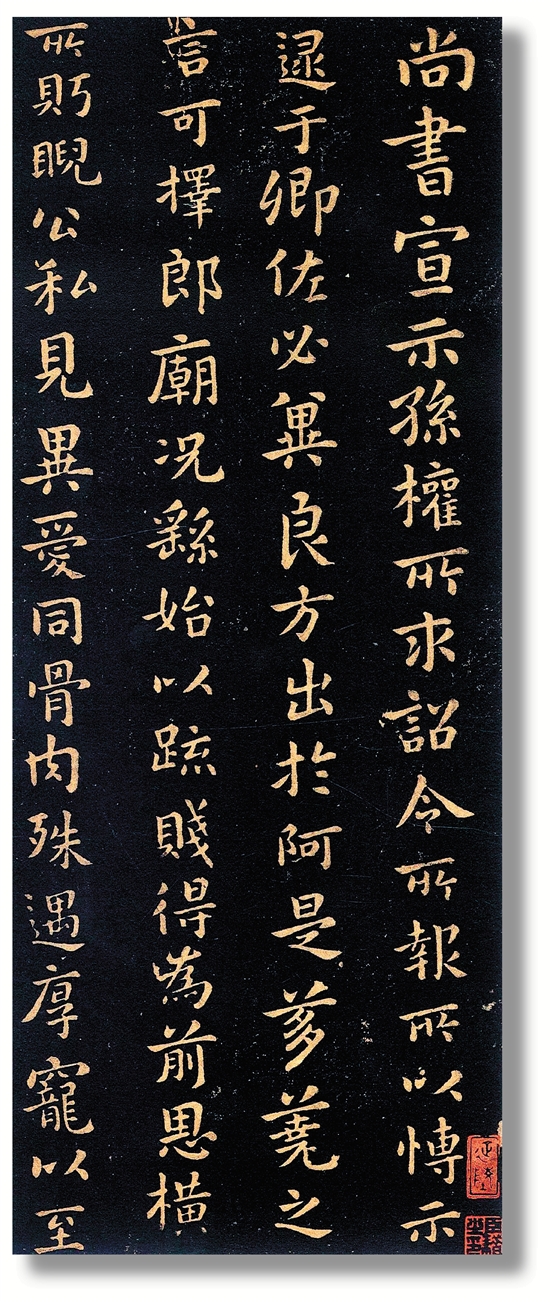 尚書宣示孫權所求詔令所報所以愽示
逮于卿佐必冀良方出於阿是芻蕘之
言可擇郎廟況繇始以疏賤得爲前恩橫
所眄睨公私見異愛同骨肉殊遇厚寵以至